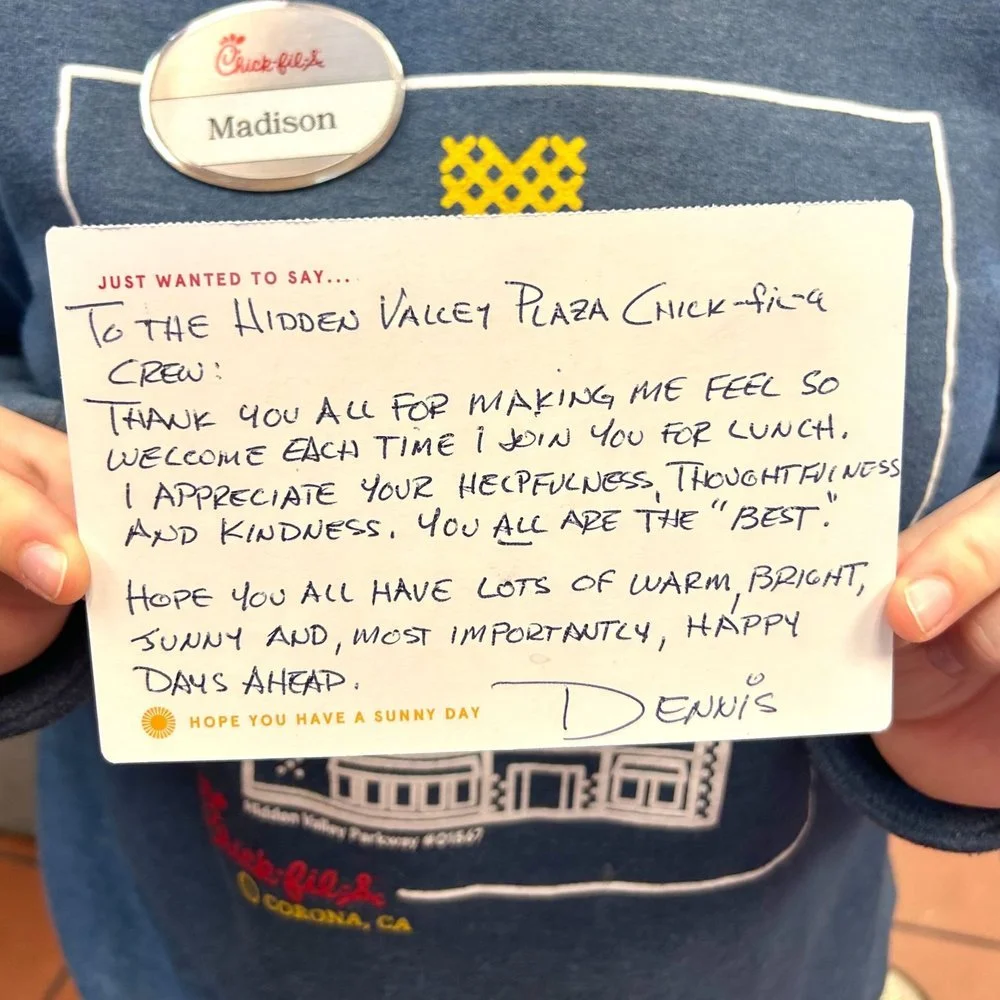 Chick-fil-A
Madison
JUST WANTED TO SAY...
TO THE HIDDEN VALLEY PLAZA CHICK-fil-a
CREW:
THANK YOU ALL FOR MAKING ME FEEL SO
WELCOME EACH TIME i JOIN YOU FOR LUNCH.
I APPRECIATE YOUR HELPFULNESS, THOUGHTFULNESS
AND KINDNESS. YOU ALL ARE THE "BEST."
HOPE YOU ALL HAVE LOTS OF WARM, BRIGHT,
SUNNY AND, MOST IMPORTANTLY, HAPPY
DAYS AHEAD.
DENNIS
HOPE YOU HAVE A SUNNY DAY
Hidden Valley Parkway #01567
Chick-fil-A
CORONA, CA